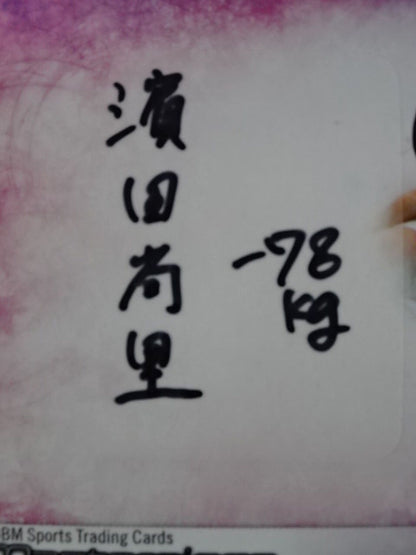 濵田尚里
-78
kg
BM Sports Trading Cards